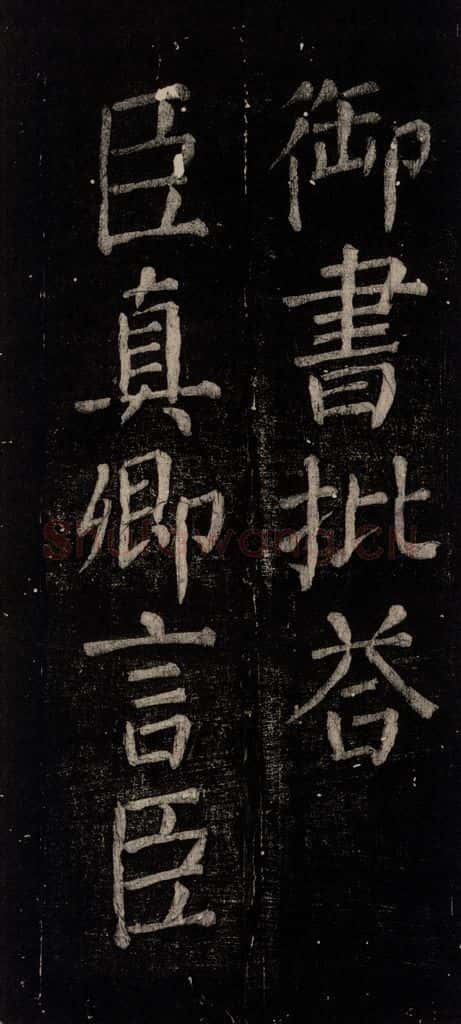 御書批荅
臣真卿言臣
shufawang.cn